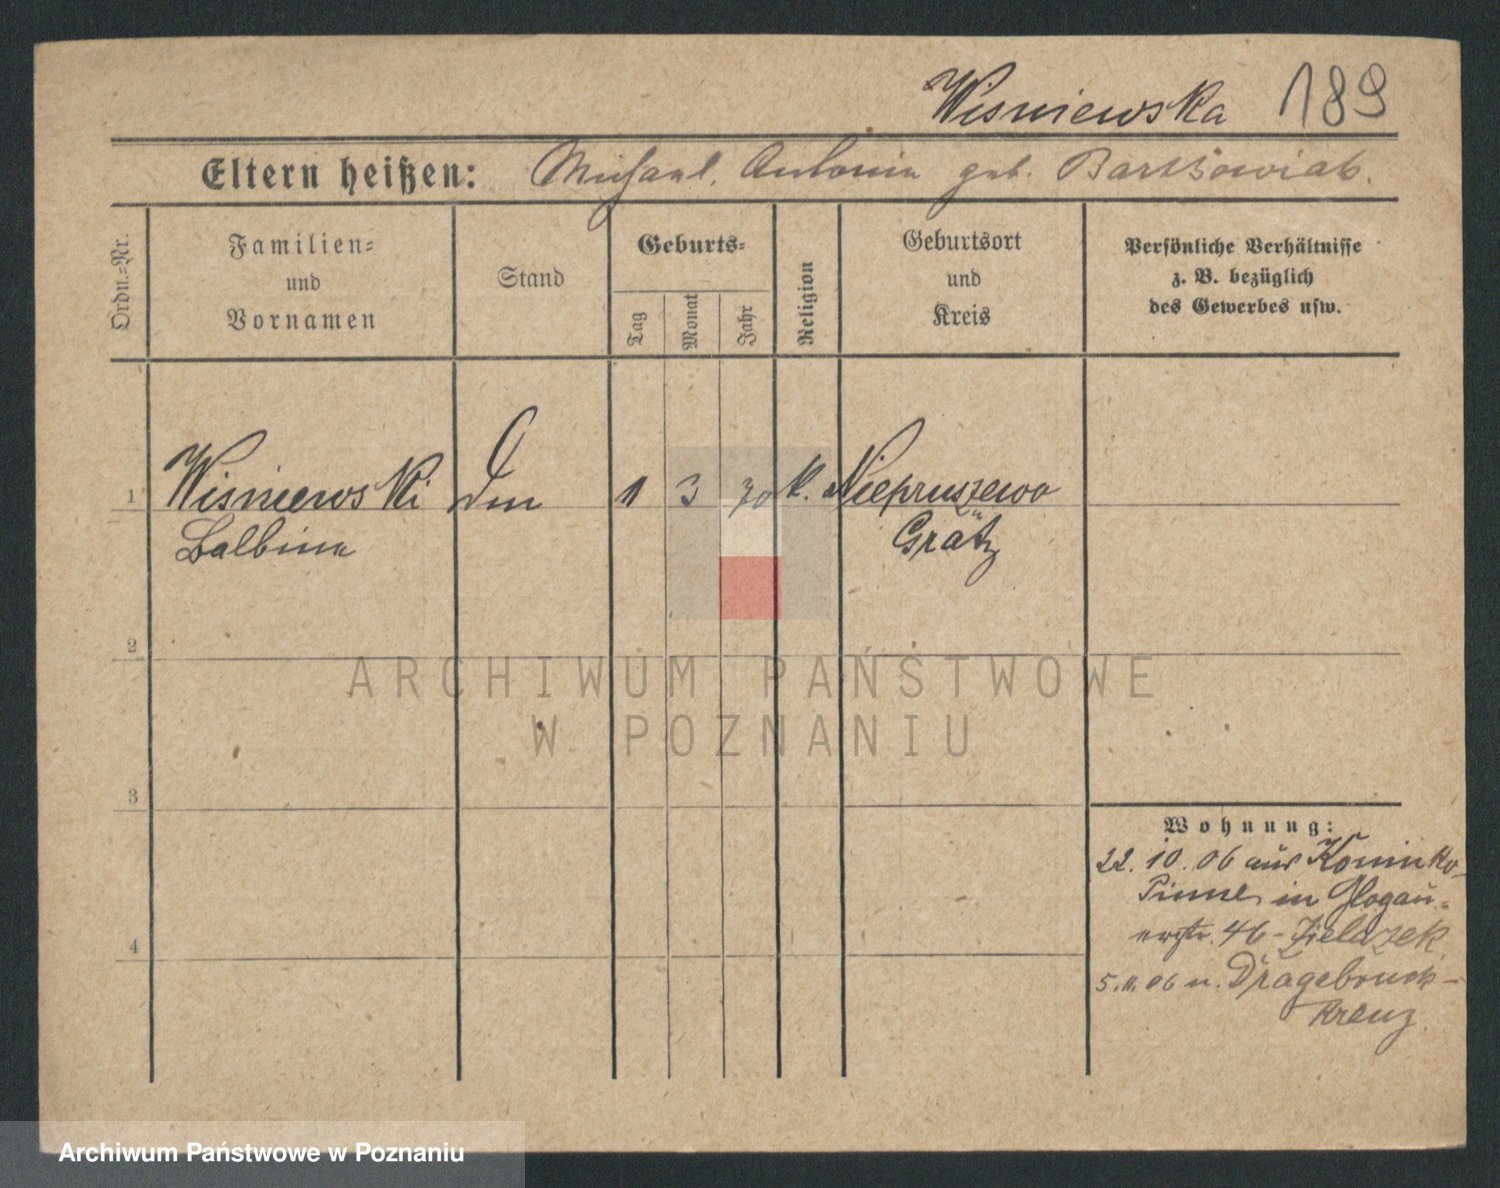 Wisniewska 189
Eltern heißen: Michael. Antonia geb. Bartkowiak.
Ordn.-Nr.
Familien-
und
Vornamen
Stand
Geburts-
Tag
Monat
Jahr
Religion
Geburtsort
und
Kreis
Persönliche Verhältnisse
z. B. bezüglich
des Gewerbes usw.
1 Wisniewski 1 3 70 k. Niepruszewo
Balbina Grätz
2
ARCHIWUM PAŃSTWOWE
W POZNANIU
3
Wohnung:
22. 10. 06 aus Koninko
Pinne in Glogau-
erstr. 46 - Zielazek.
5. 11. 06 n. Dragebruck-
Kreuz.
4
Archiwum Państwowe w Poznaniu